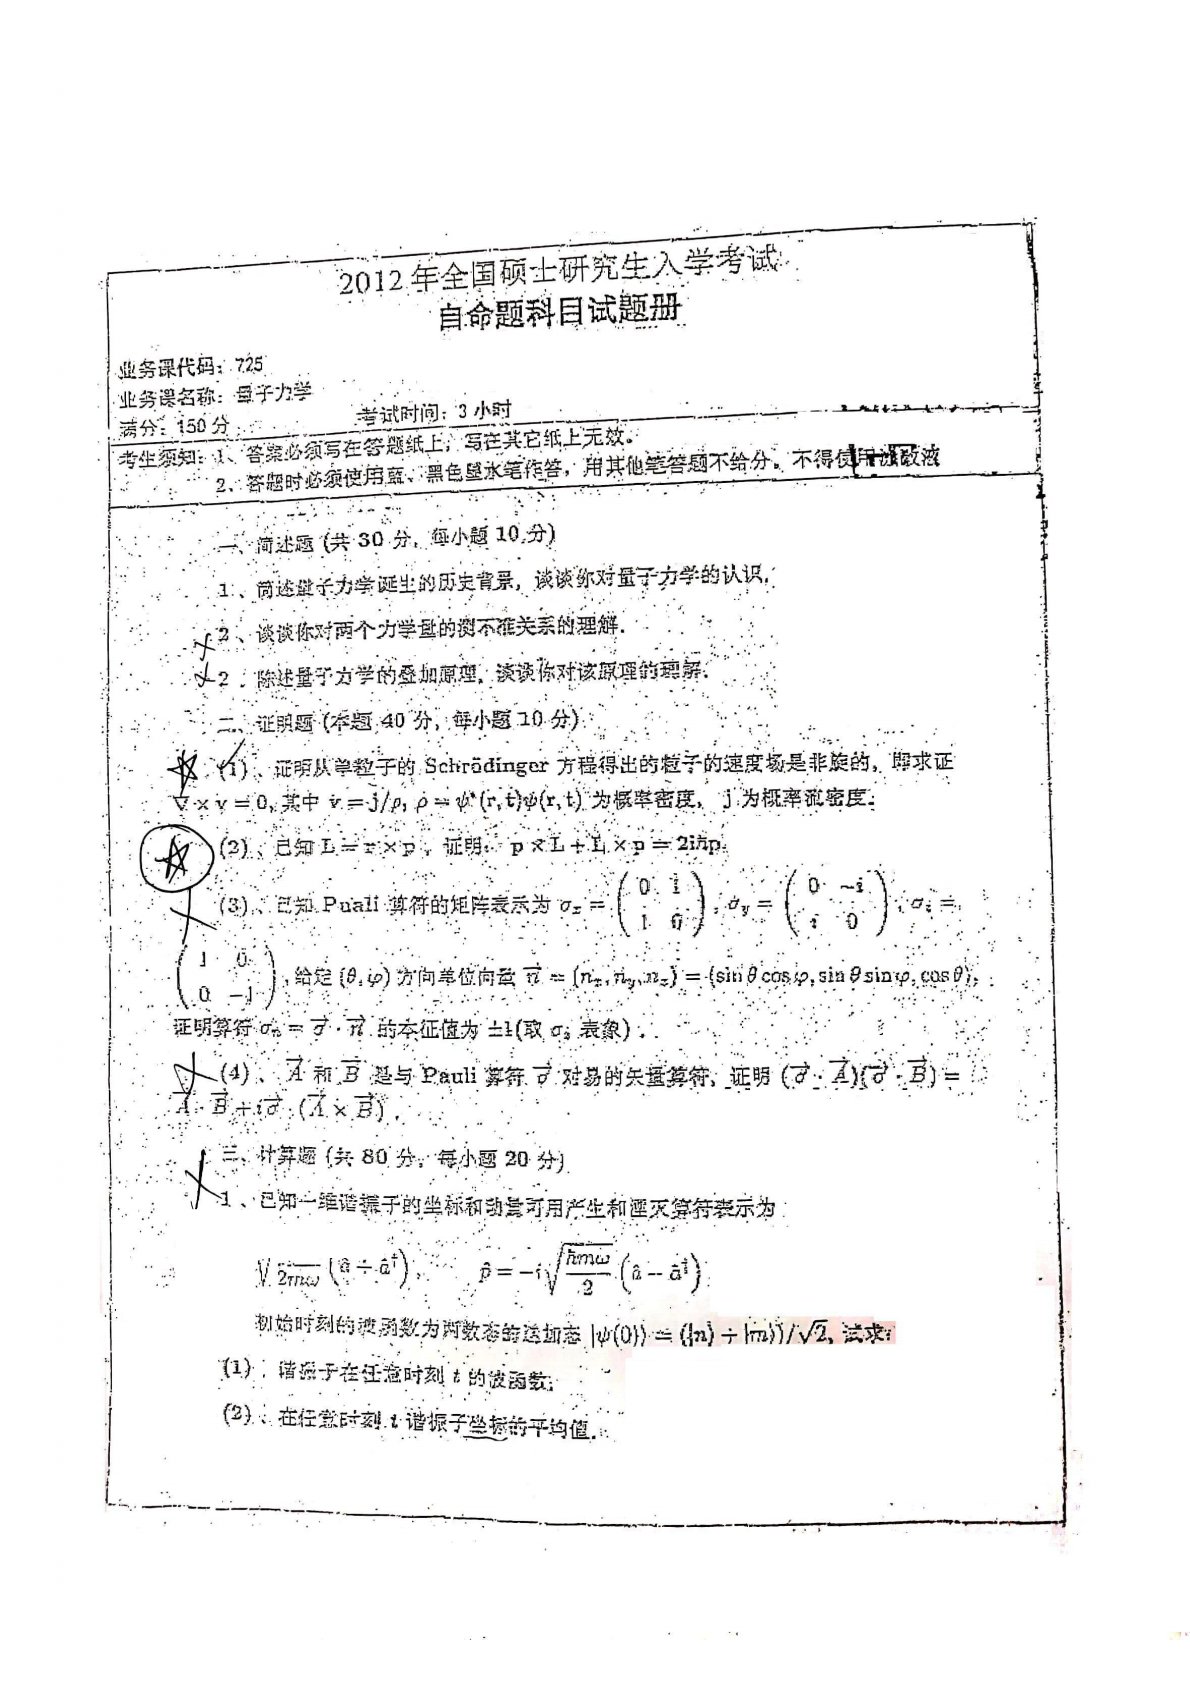 2012年全国硕士研究生入学考试
自命题科目试题册
业务课代码：725
业务课名称：量子力学
满分：150分
考试时间：3小时
考生须知：1、答案必须写在答题纸上，写在其它纸上无效。
2、答题时必须使用蓝、黑色墨水笔作答，用其他笔答题不给分。不得使用涂改液
一、简述题 (共 30 分，每小题 10 分)
1、简述量子力学诞生的历史背景，谈谈你对量子力学的认识.
2、谈谈你对两个力学量的测不准关系的理解.
2．陈述量子力学的叠加原理，谈谈你对该原理的理解.
二、证明题 (本题 40 分，每小题 10 分)
(1)、证明从单粒子的 Schrödinger 方程得出的粒子的速度场是非旋的，即求证
∇×v = 0, 其中 v = j/ρ, ρ = ψ*(r,t)ψ(r,t) 为概率密度， j 为概率流密度.
(2)、已知 L = r × p ，证明： p × L + L × p = 2iħp.
(3)、已知 Puali 算符的矩阵表示为 σx = ( 0 1 ; 1 0 ) , σy = ( 0 −i ; i 0 ) , σz =
( 1 0 ; 0 −1 ) , 给定 (θ,φ) 方向单位向量 n⃗ = (nx, ny, nz) = (sin θ cos φ, sin θ sin φ, cos θ),
证明算符 σn = σ⃗ · n⃗ 的本征值为 ±1(取 σz 表象) .
(4)、 A⃗ 和 B⃗ 是与 Pauli 算符 σ⃗ 对易的矢量算符，证明 (σ⃗ · A⃗)(σ⃗ · B⃗) =
A⃗ · B⃗ + iσ⃗ · (A⃗ × B⃗) .
三、计算题 (共 80 分，每小题 20 分)
1、已知一维谐振子的坐标和动量可用产生和湮灭算符表示为
√ 2mω (â + â†), p̂ = −i√(ħmω/2) (â − â†)
初始时刻的波函数为两数态的迭加态 |ψ(0)⟩ = (|n⟩ + |m⟩)/√2, 试求:
(1)．谐振子在任意时刻 t 的波函数;
(2)、在任意时刻 t 谐振子坐标的平均值.